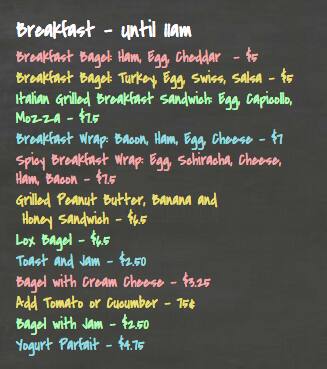 Breakfast - until 11am
Breakfast Bagel: Ham, Egg, Cheddar - $5
Breakfast Bagel: Turkey, Egg, Swiss, Salsa - $5
Italian Grilled Breakfast Sandwich: Egg, Capicollo,
Moz-z-a - $7.5
Breakfast Wrap: Bacon, Ham, Egg, Cheese - $7
Spicy Breakfast Wrap: Egg, Schiracha, Cheese,
Ham, Bacon - $7.5
Grilled Peanut Butter, Banana and
Honey Sandwich - $6.5
Lox Bagel - $6.5
Toast and Jam - $2.50
Bagel with Cream Cheese - $3.25
Add Tomato or Cucumber - 75¢
Bagel with Jam - $2.50
Yogurt Parfait - $4.75